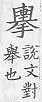 擧
說文對
舉也